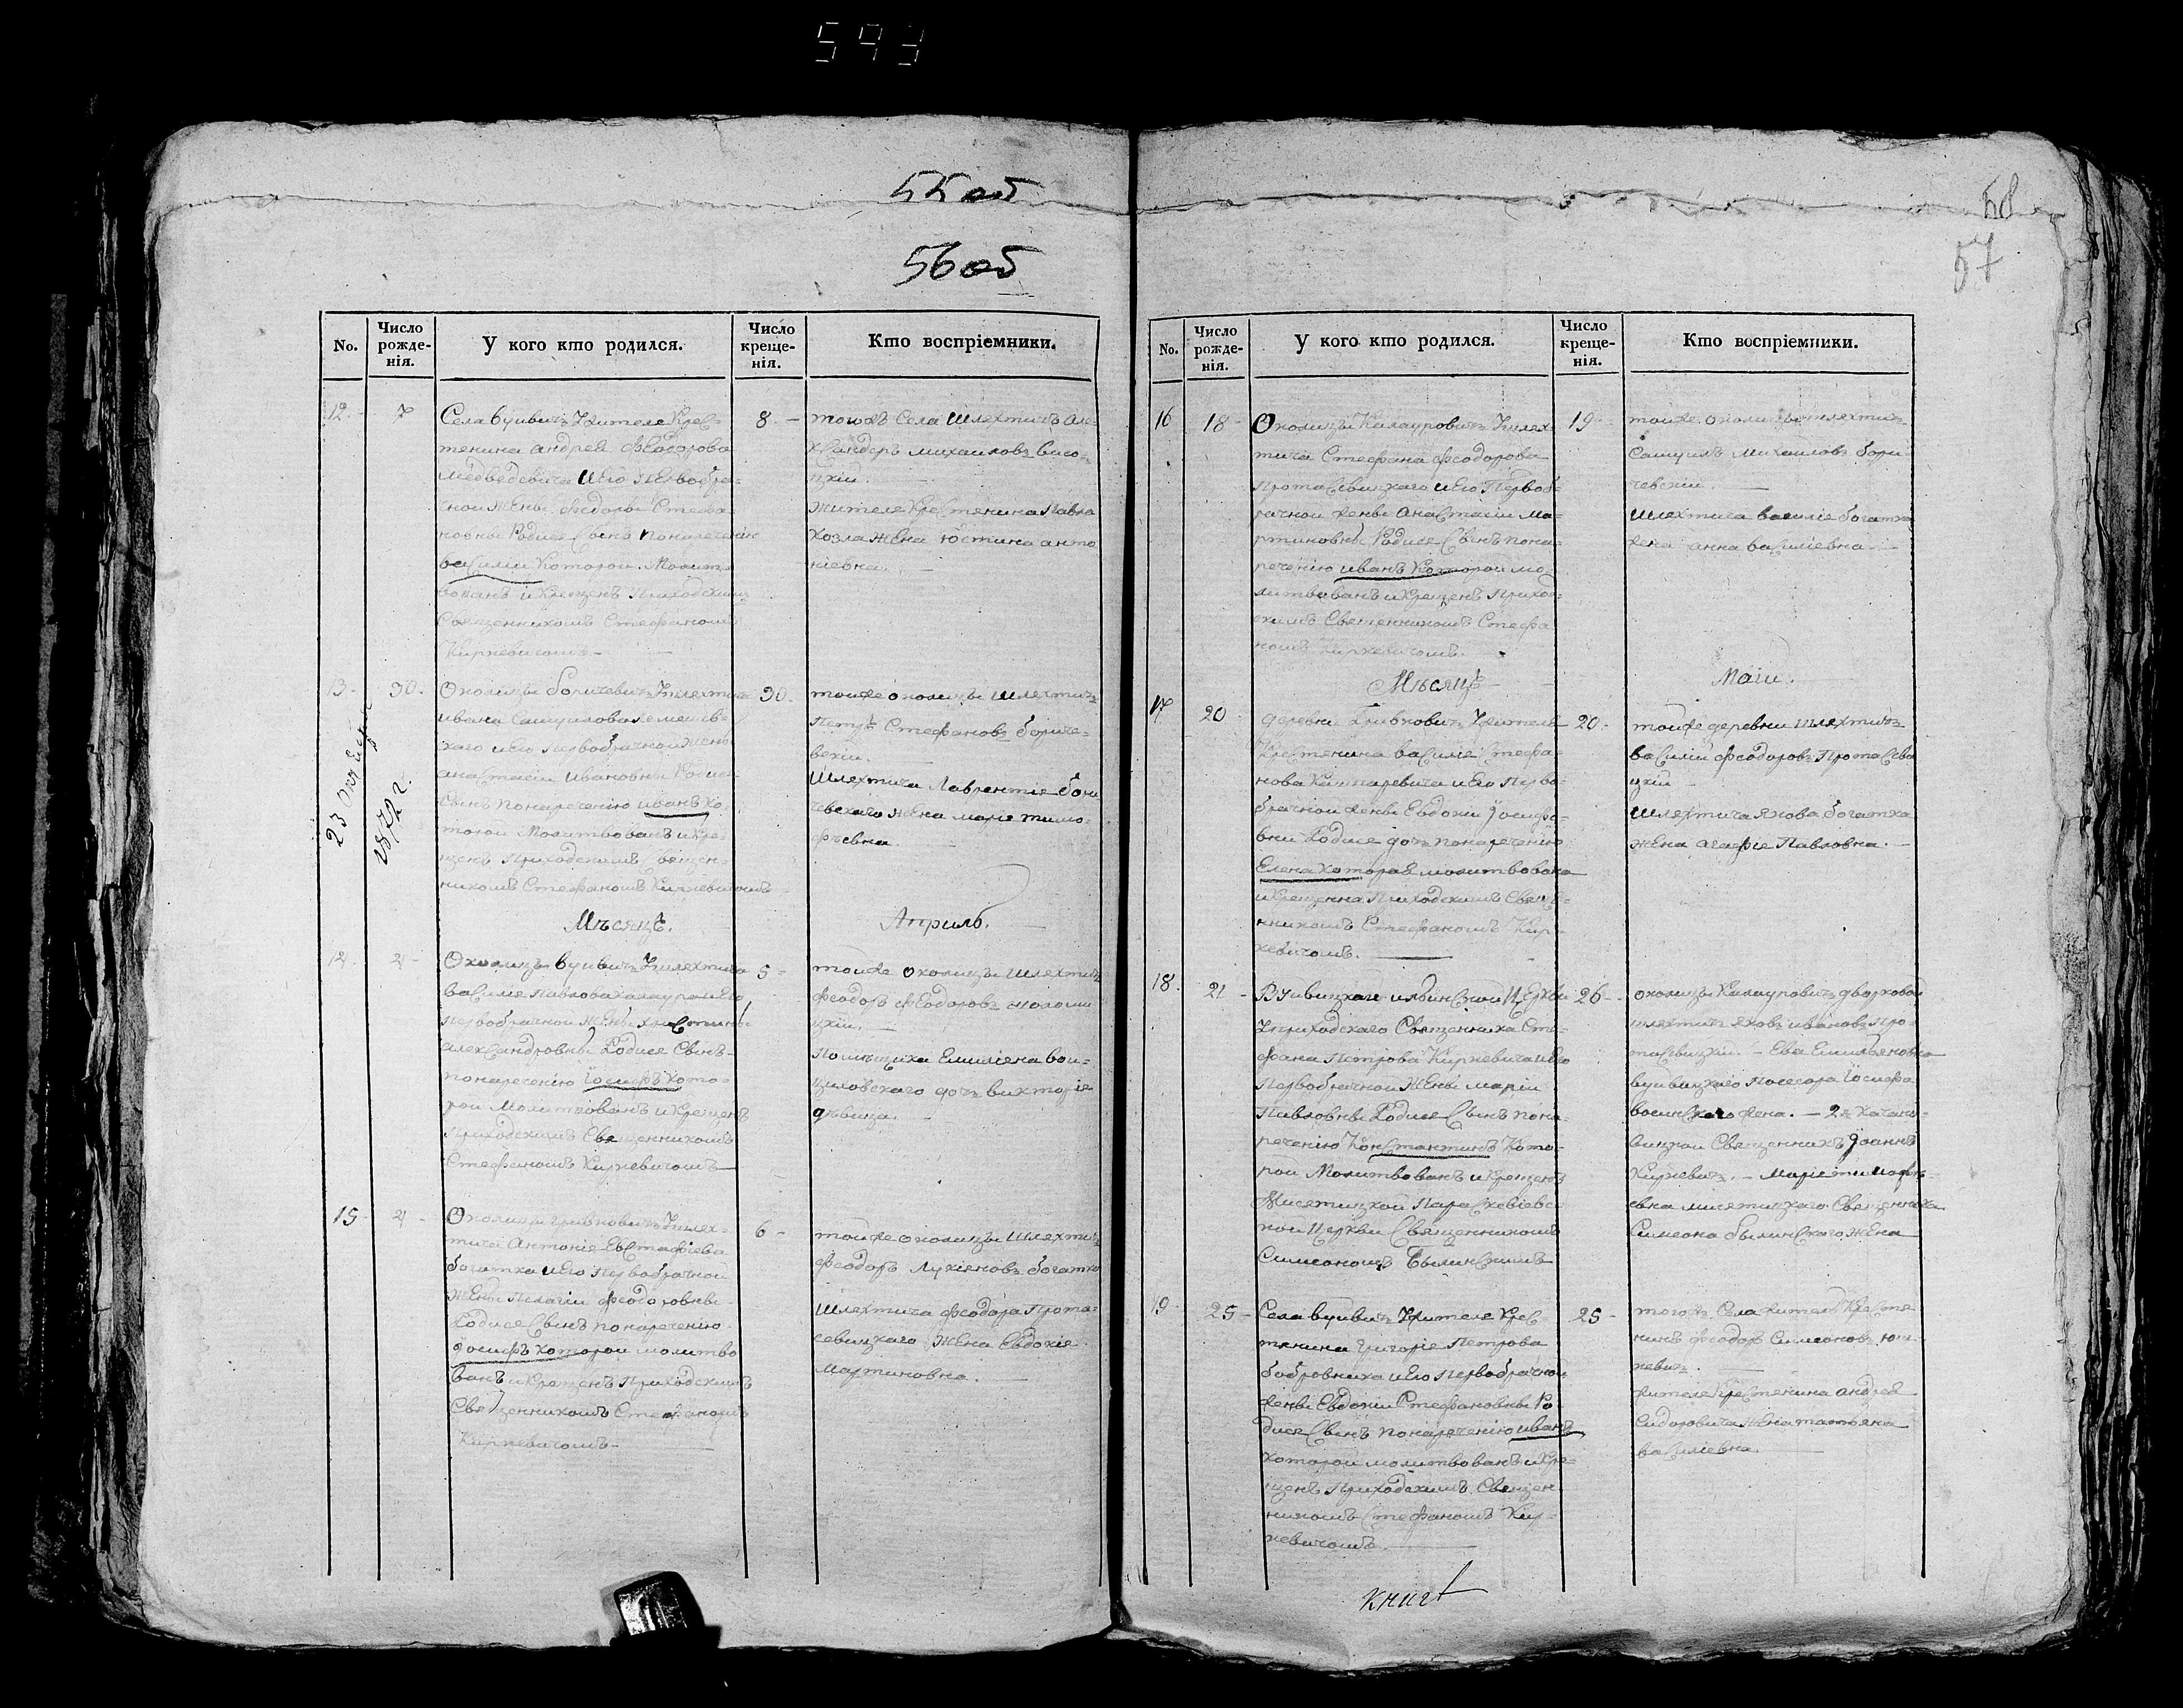 593
55 об
56 об
No.
Число рожде-нія.
У кого кто родился.
Число креще-нія.
Кто воспріемники.
12.
7
Села вуивичъ Жителе Крес-
тенина андрея Феодорова
Медведевича и его первобра-
чной жены Федоры Стефа-
новны Родисе Сынъ понаречению
василий которой. Молитв-
вованъ и Крещенъ Приходскимъ
Священникомъ Стефаномъ
Киркевичомъ.
8.
тогожъ Села Шляхтичъ Але-
ксандеръ михаиловъ висо-
цкии.
Жителе Крестенина Павла
Козла жена юстина анто
ниевна.
23 Октября
1872 г.
13.
30.
Околицы боричевичъ Шляхтича
ивана Самуилова
скаго и его первобрачной жены
анастасии ивановны Родисе
Сынъ понаречению иванъ ко
торой Молитвованъ и Кре-
щенъ Приходскимъ Священ-
никомъ Стефаномъ Киркевичомъ
30.
тойже околицы шляхтичъ
Петръ Стефановъ бориче-
вскии.
Шляхтича Лаврентие бори
чевскаго жена марие тимо-
феевна.
Мѣсяцъ.
Апрыль.
14.
4
Околицы вуивичъ Шляхтича
василие Павлова и его
первобрачной жены христины
александровны Родисе Сынъ
понаречению Іосифъ кото-
рой Молитвованъ и Крещенъ
Приходскимъ Священникомъ
Стефаномъ Киркевичомъ
5
тойже околицы шляхтичъ
Феодоръ Феодоровъ
цкии.
Помѣщика Емилиена вои-
циловскаго дочь викторие
дѣвица.
15
4
Околицы гривковичъ Шлях-
тича Антоние Евстафиева
богатка и его первобрачной
жены Пелагии феодоровны
Родисе Сынъ понаречению
Іосифъ которой молитво
ванъ и Крещенъ Приходскимъ
Священникомъ Стефаномъ
Киркевичомъ
6
тойже околицы шляхтичъ
Феодоръ Лукиеновъ богатко
Шляхтича феодора Прота-
севицкаго жена Евдокие
Мартиновна.
58
57
No.
Число рожде-нія.
У кого кто родился.
Число креще-нія.
Кто воспріемники.
16
18
Околицы Килауровичъ Шлях-
тича Стефана феодорова
Протасевицкаго и его Первоб-
рачной жены Анастасии ма-
ртиновны Родисе Сынъ пона-
речению иванъ Которой мо-
литвованъ и Крещенъ Приход-
скимъ Священникомъ Стефа
номъ Киркевичомъ.
19
тойже околицы шляхтичъ
Самуилъ Михаиловъ бори
чевскии.
Шляхтича василие богатка
жена анна василиевна
Мѣсяцъ
Маій.
17
20
деревни Гривковичъ Жителе
Крестенина василие Стефа-
нова и его Перво-
брачной жены Евдокии Іосифо-
вни Родисе дочь понаречению
Елена которая молитвована
и крещенна Приходскимъ Свяще-
нникомъ Стефаномъ Кир-
кевичомъ.
20
тойже деревни шляхтичъ
василий феодоровъ Протасеви
цкий
Шляхтича Якова богатка
жена агафие Павловна.
18.
21
Вуивицкаи илиинской Церкви
Приходскаго Священника Сте
фана Петрова Киркевича и его
Первобрачной жены марии
Павловны Родисе Сынъ пона-
речению Константинъ Кото-
рой Молитвованъ и Крещенъ
Мисетицкой Параскевиевс-
кой Церкви Священникомъ
Симеономъ Былинскимъ
26
околицы Килауровичъ дворковой
шляхтичъ яковъ ивановъ Про-
тасевицкии. - Ева Емильяновна
вуивицкаго посесора Іосифа
воинскаго жена. - 2е Качано-
вицкои Священникъ Іоаннъ
Киркевичъ. - Марие тимофе-
евна мисетицкаго Священника
Симеона былинскаго жена
19
25
Села вуивичъ Жителе Крес
тенина григорие Петрова
бобровника и его Первобрачной
жены Евдокии Стефановны Ро
дисе Сынъ понаречению иванъ
которой молитвованъ и Кре-
щенъ Приходскимъ Священ
никомъ Стефаномъ Кир-
кевичомъ.
25
тогожъ Села житель Кресте
нинъ феодоръ Симеоновъ юш-
кевичъ.
жителе Крестенина андрея
Сидоровича жена татиана
василиевна.
книгѣ